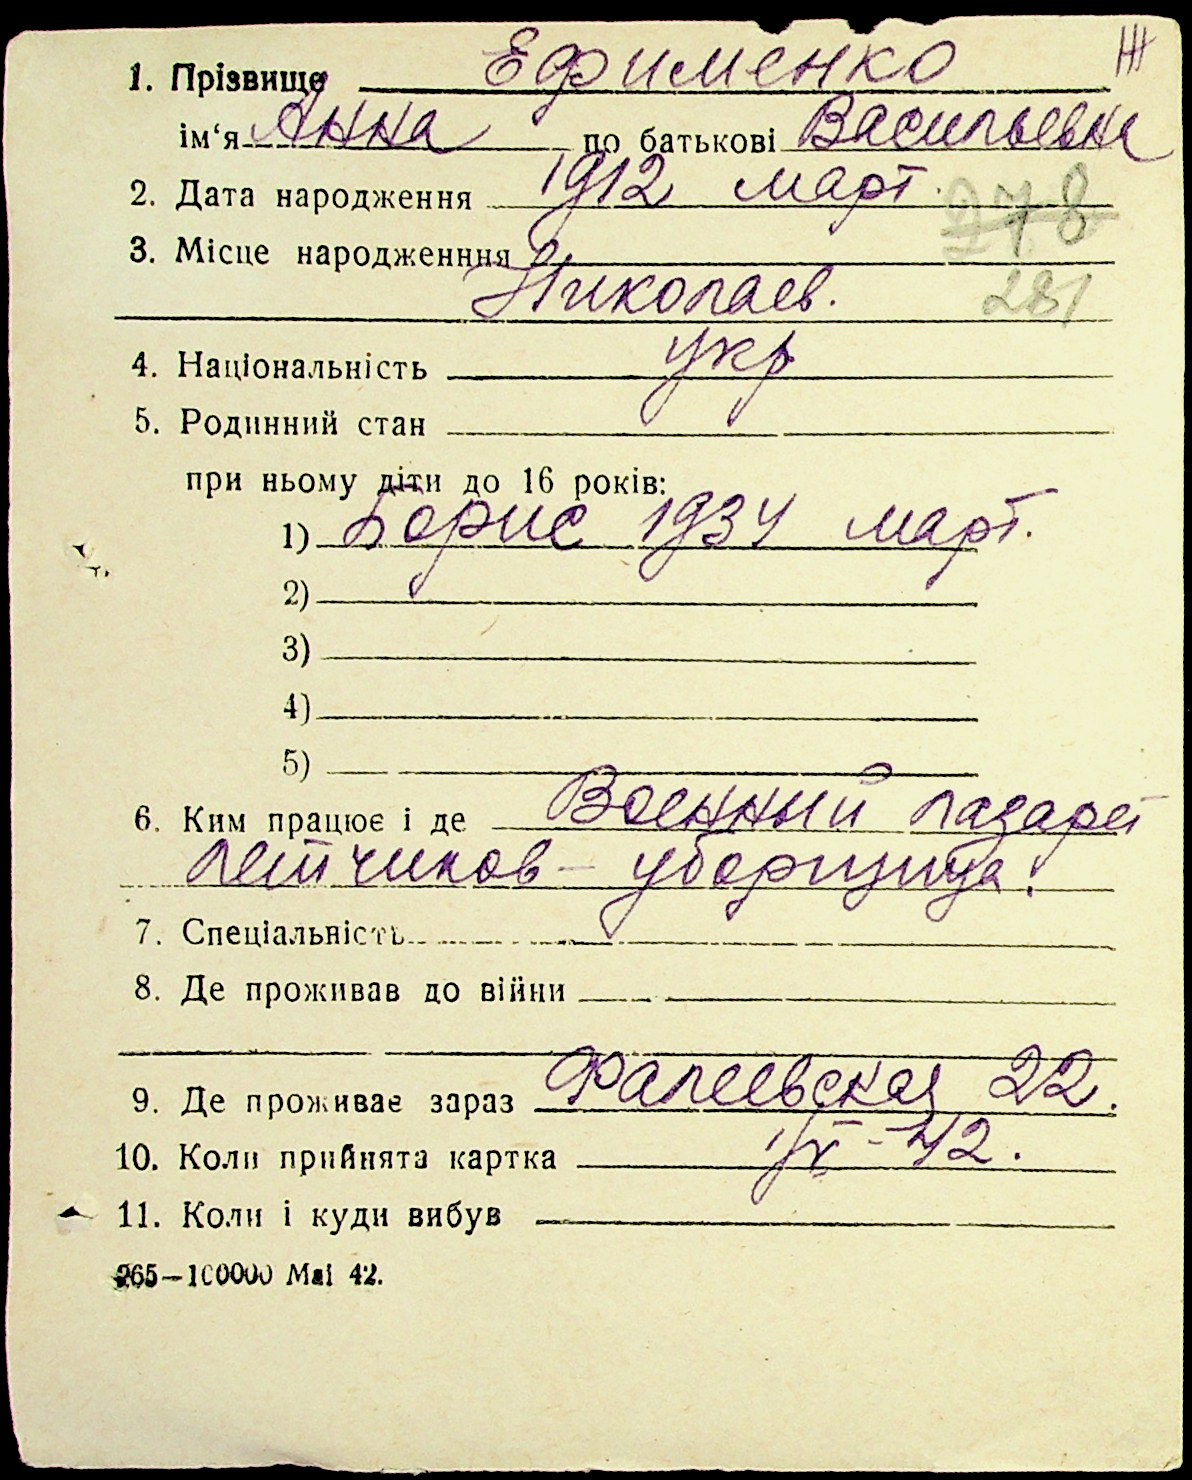 Ж
1. Прізвище Ефименко
ім‘я Анна по батькові Васильевна
2. Дата народження 1912 март.
278
3. Місце народженння
Николаев. 281
4. Національність укр
5. Родинний стан
при ньому діти до 16 років:
1) Борис 1934 март.
2)
3)
4)
5)
6. Ким працює і де Военный лазарет
летчиков – уборщица.
7. Спеціальність
8. Де проживав до війни
9. Де проживає зараз Фалеевская 22.
10. Коли прийнята картка IX - 42.
11. Коли і куди вибув
265—100000 Mai 42.